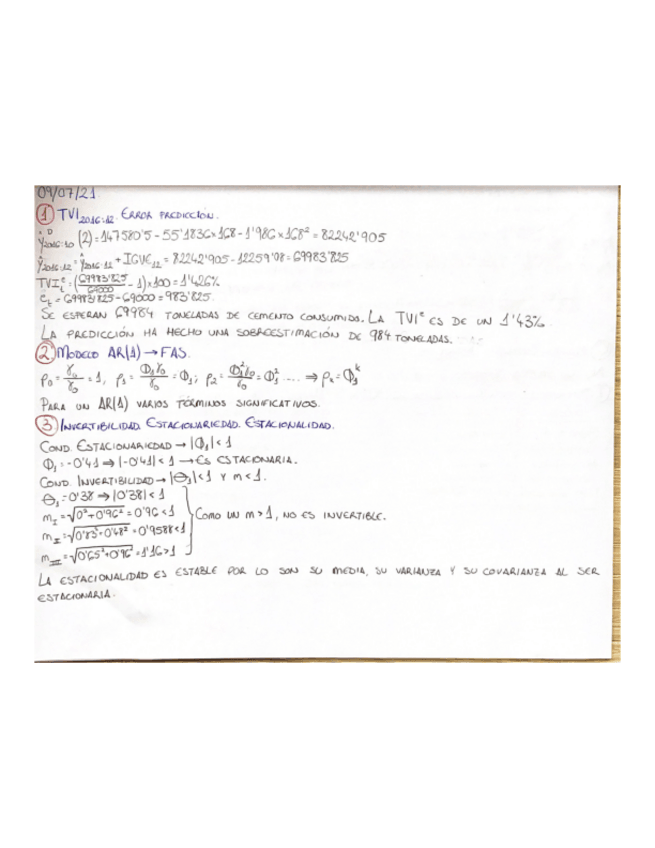 09/07/21.
① TVI₂₀₁₆:₁₂. ERROR PREDICCIÓN.
ŷᴰ₂₀₁₆:₁₀ (2) = 147580'5 - 55'1836×168 - 1'986×168² = 82242'905
ŷ₂₀₁₆:₁₂ = ŷ₂₀₁₆:₁₂ + IGVE₁₂ = 82242'905 - 12259'08 = 69983'825
TVIᵉₜ = (69983'825/69000 - 1)×100 = 1'426%
êₜ = 69983'825 - 69000 = 983'825.
SE ESPERAN 69984 TONELADAS DE CEMENTO CONSUMIDO. LA TVIᵉ ES DE UN 1'43%
LA PREDICCIÓN HA HECHO UNA SOBREESTIMACIÓN DE 984 TONELADAS.
② MODELO AR(1) → FAS.
ρ₀ = γ₀/γ₀ = 1, ρ₁ = Φ₁γ₀/γ₀ = Φ₁; ρ₂ = Φ₁²γ₀/γ₀ = Φ₁² .... ⇒ ρₖ = Φ₁ᵏ
PARA UN AR(1) VARIOS TÉRMINOS SIGNIFICATIVOS.
③ INVERTIBILIDAD. ESTACIONARIEDAD. ESTACIONALIDAD.
COND. ESTACIONARIEDAD → |Φ₁| < 1
Φ₁ = -0'41 ⇒ |-0'41| < 1 → ES ESTACIONARIA.
COND. INVERTIBILIDAD → |Θ₁| < 1 Y m < 1.
Θ₁ = 0'38 ⇒ |0'38| < 1
m_I = √(0² + 0'96²) = 0'96 < 1 } COMO UN m > 1, NO ES INVERTIBLE.
m_II = √(0'83² + 0'48²) = 0'9588 < 1
m_III = √(0'65² + 0'96²) = 1'16 > 1
LA ESTACIONALIDAD ES ESTABLE POR LO SON SU MEDIA, SU VARIANZA Y SU COVARIANZA AL SER
ESTACIONARIA.